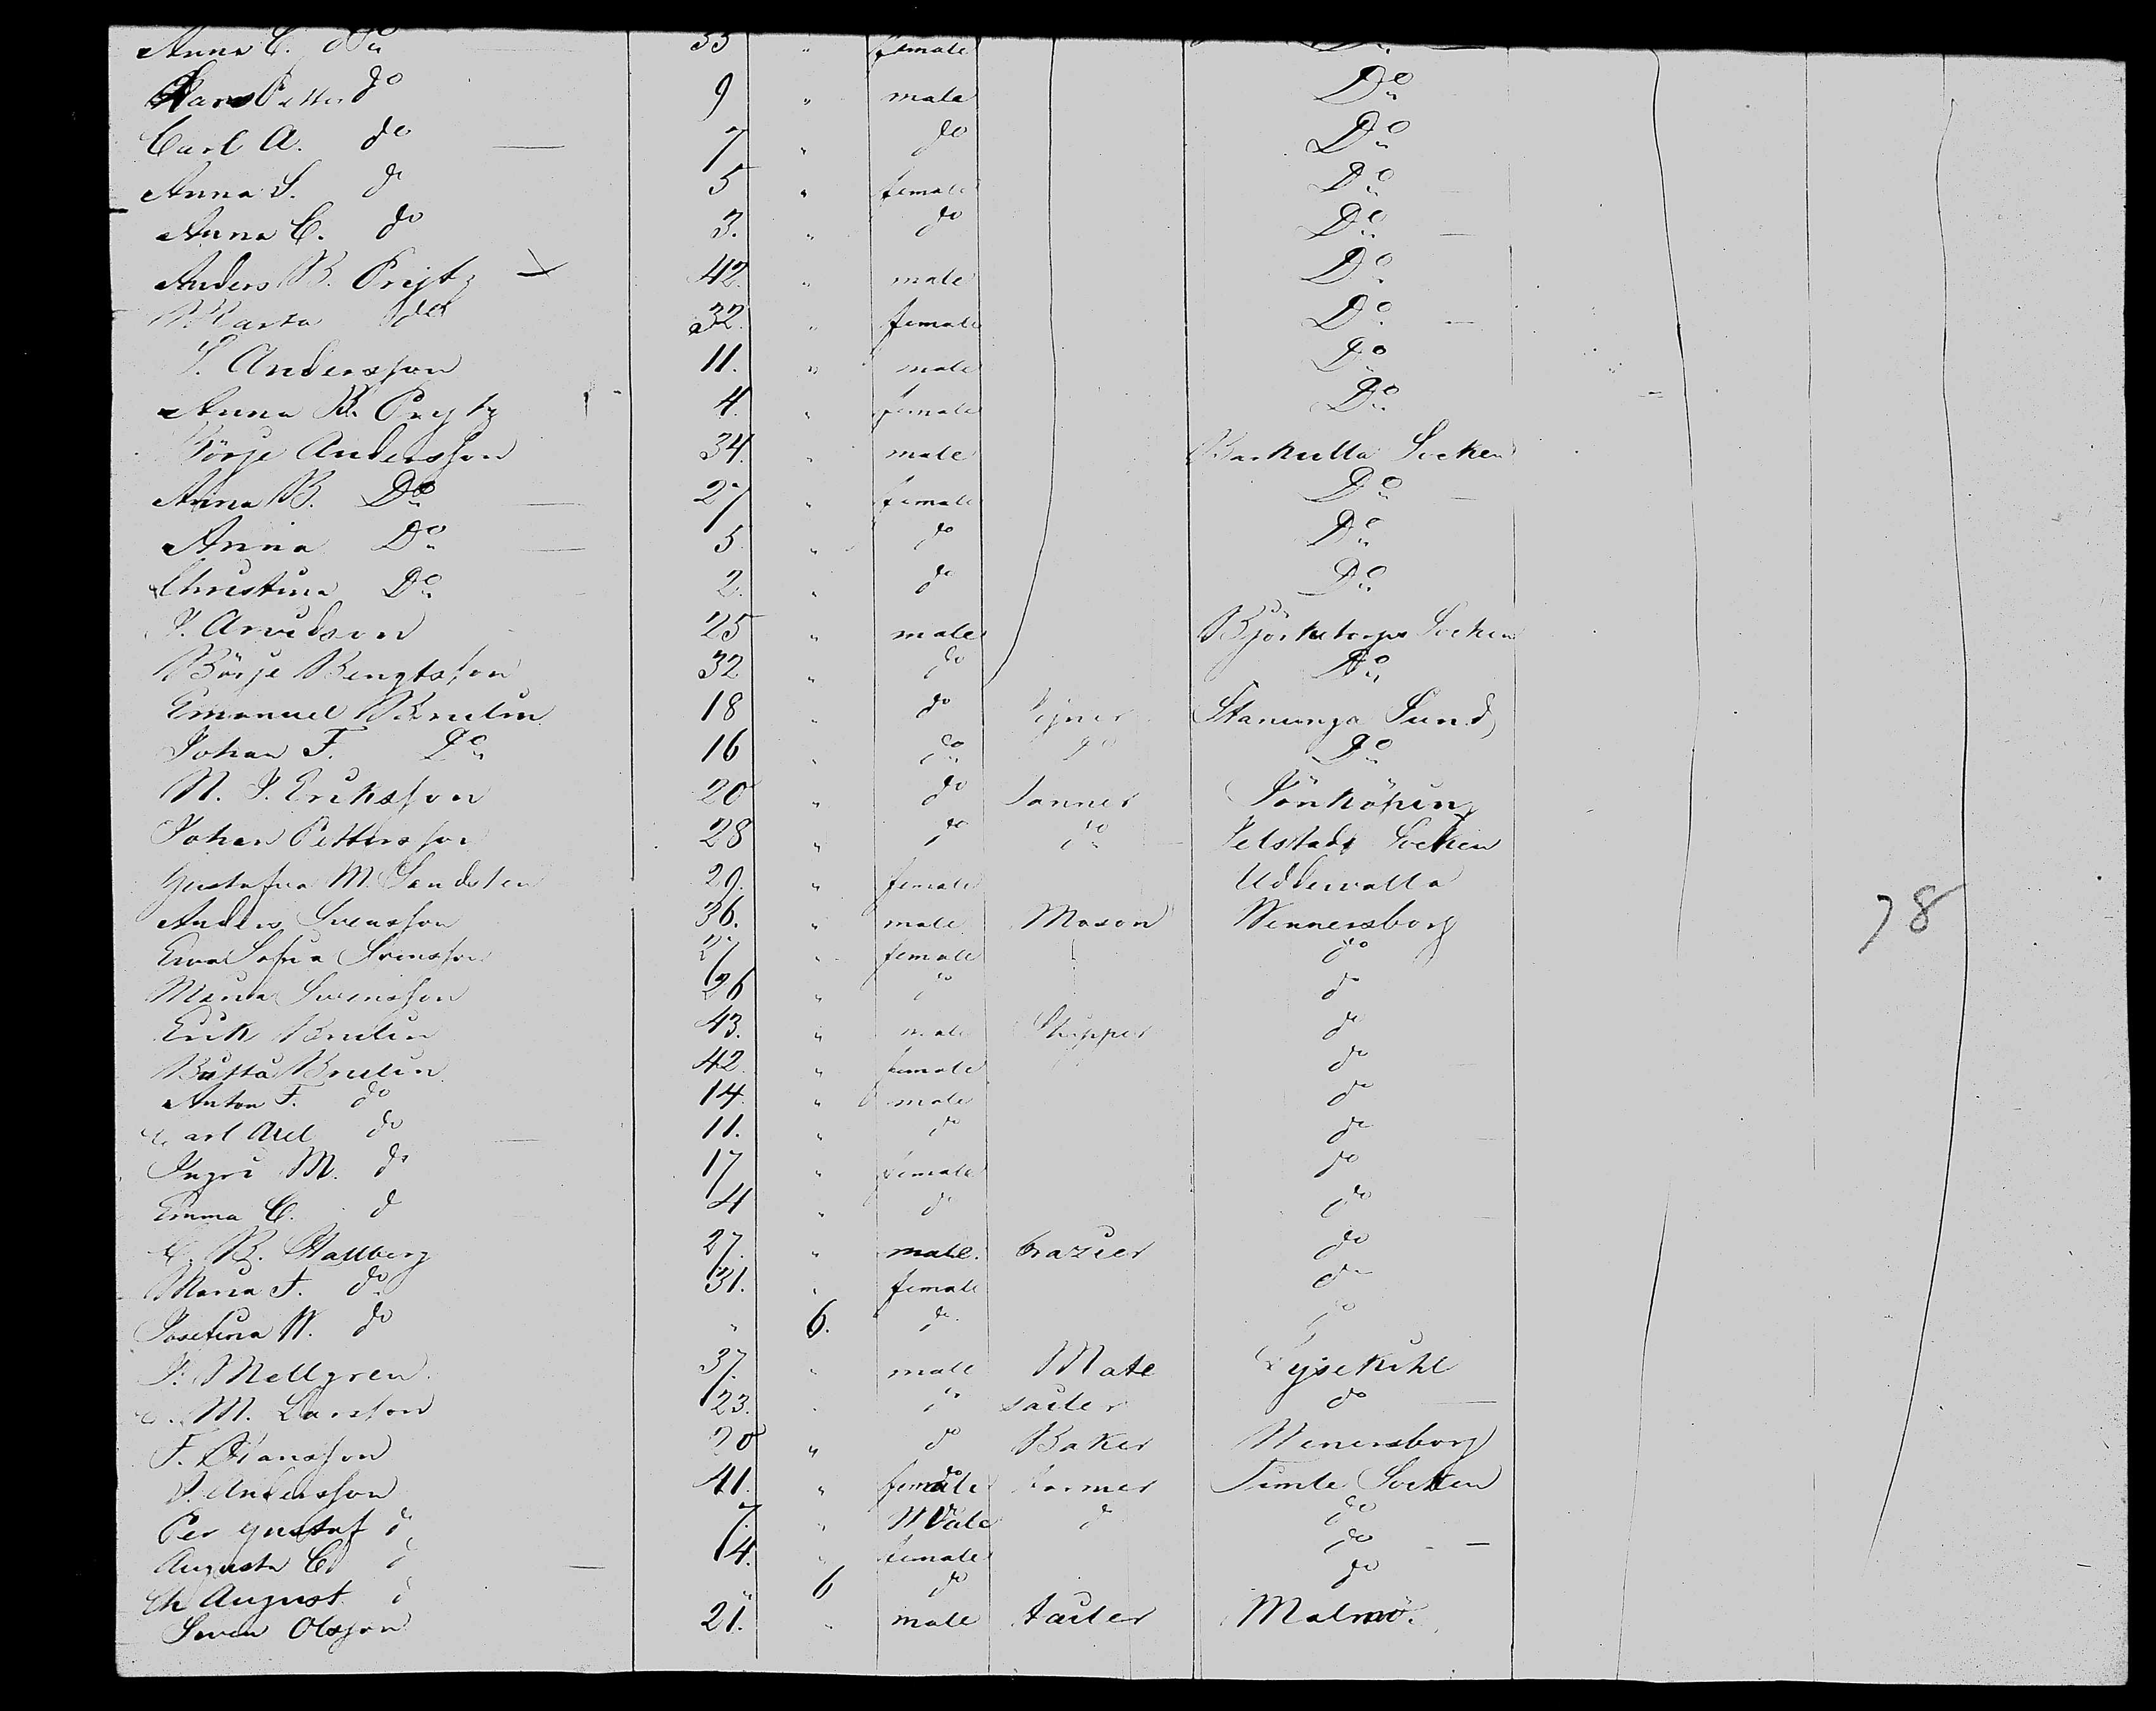 Anna C. Do 33 " female Do
Hans Petter do 9 " male Do
Carl A. do 7 " do Do
Anna S. do 5 " female Do
Anna C. do 3. " do Do
Anders B. Preytz 42. " male Do
Marta do 32. " female Do
S. Andersson 11. " male Do
Anna B. Preytz 4. " female Do
Börje Andersson 34. " male Socken
Anna B. Do 27 " female Do
Anna Do 5 " do Do
Christina Do 2. " do Do
J. Arvidson 25 " male Björketorps Socken
Börje Bengtsson 32 " do Do
Emanuel Brulin 18 " do Sund
Johan F. Do 16 " do do Do
N. J. Eriksson 20 " do Tanner Jönköping
Johan Pettersson 28 " do do Socken
Gustafva M. Sandsten 29. " female Uddevalla
Anders Svensson 36. " male Mason Wennersborg
Eva Sofia Svensson 27 " female do
Maria Svensson 26 " do do
Erik Brulin 43. " male Skipper do
Britta Brulin 42. " female do
Anton F. do 14. " male do
Carl Axel do 11. " do do
Ingri M. do 17 " female do
Emma C. d 4 " do do
C. B. Hallberg 27. " male. brazier do
Maria F. do 31. " female do
Josefina W. do " 6. do. do
J. Mellgren. 37. " male Mate Lysekihl
C. M. Larsson 23. " do sailer do
F. Hansson 20 " do Baker Wenersborg
J. Andersson 41. " female do farmer Timle Socken
Per Gustaf d 7. " Male d do
Augusta C. d 4. " female do
Ch August d " 6 do do
Sven Olsson 21. " male tailer Malmö.
78